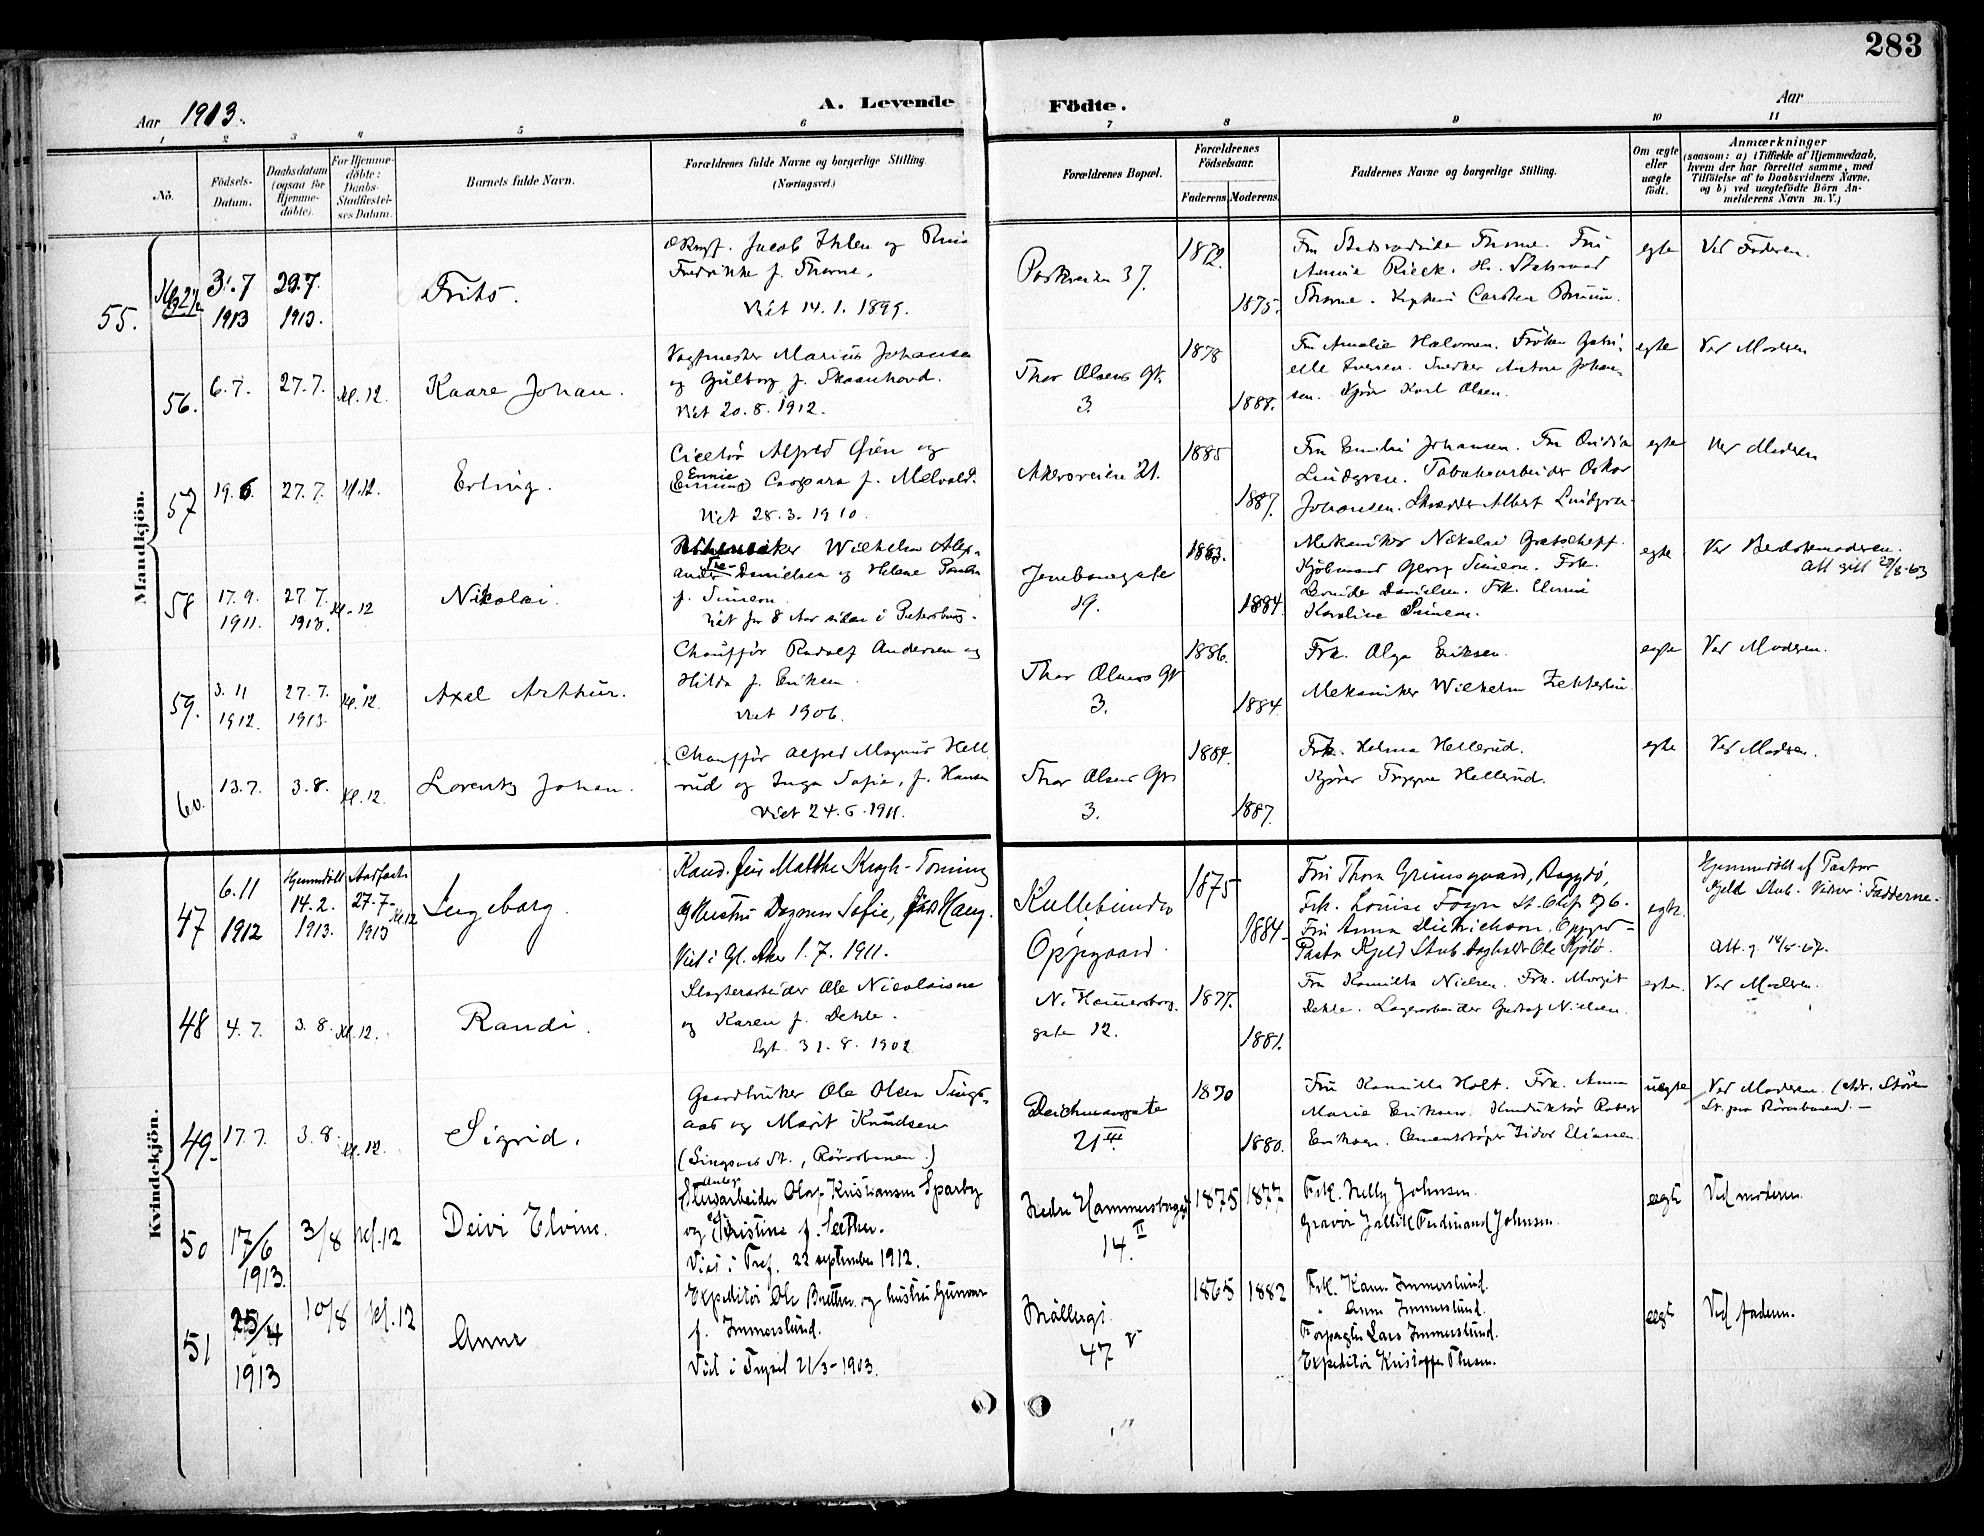 283
Aar 1913.
A. Levende Födte.
Aar
1 2 3 4 5 6 7 8 9 10 11
No.
Födsels-Datum.
Daabsdatum (ogsaa for Hjemme-döbte).
For Hjemme-döbte: Daabs-Stadfæstel-ses Datum.
Barnets fulde Navn.
Forældrenes fulde Navne og borgerlige Stilling. (Næringsvei.)
Forældrenes Bopæl.
Forældrenes Födselsaar.
Faderens Moderens
Faddernes Navne og borgerlige Stilling.
Om ægte eller uægte födt.
Anmærkninger
(saasom: a) i Tilfælde af Hjemmedaab, hvem der har forrettet samme, med Tilföielse af to Daabsvidners Navne, og b) ved uægtefödte Börn Anmelderens Navn m. V.)
Mandkjön.
55.
3.7 1913
29.7. 1913.
Frits.
Jacob Ihlen og
Fredrikke f. Thorne.
Viet 14.1.1899.
Parkveien 37.
1872.
1875.
Fru Statsraadinde Thorne. Fru
Annie Rieck. Hr. Statsraad
Thorne. Kaptein Carsten Bruun.
egte
Ved Faderen.
56.
6.7.
27.7.
Kl. 12.
Kaare Johan.
Vagtmester Marius Johansen
og Gulborg f. Skaanhovd.
Viet 20.8.1912.
Thor Olsens Gt.
3.
1878
1888.
Fru Amalie Halvorsen. Frøken Gabri-
elle Iversen. Snedker Anton Johan-
sen. Kjører Karl Olsen.
egte
Ved Moderen
57
19.6.
27.7.
Kl. 12.
Erling.
Alfred Øien og
Ennie Caspara f. Melvold.
Viet 28.3.1910.
Akersveien 21.
1885
1887.
Fru Emilie Johansen. Fru Ovidia
Lindgren. Tobaksarbeider Oskar
Johansen. Skrædder Albert Lindgren
egte
Ved Moderen
58
17.9. 1911.
27.7. 1913.
Kl. 12
Nikolai.
Wilhelm Alex-
ander Danielsen og Helene
f. Simeon.
Viet for 8 Aar siden i Petersburg.
Jernbanegate
19.
1883.
1884.
Mekaniker Nikolai Gratscheff.
Kjøbmand Georg Simeon. Frk.
Danielsen. Frk.
Karoline Simeon.
egte
Ved Bedstemoderen.
Att gitt 23/8-63
59.
3.11 1912.
27.7. 1913.
Kl. 12.
Axel Arthur.
Chauffør Rudolf Andersen og
Hilda f. Eriksen.
Viet 1906.
Thor Olsens Gt
3.
1886.
1884.
Frk. Olga Eriksen.
Mekaniker Wilhelm
egte
Ved Moderen.
60.
13.7.
3.8.
Kl. 12.
Lorentz Johan.
Chauffør Alfred Magnus Helle
rud og Inga Sofie, f. Hansen
Viet 24.6.1911.
Thor Olsens Gt.
3.
1884.
1887.
Frk. Helma Hellerud.
Kjører Trygve Hellerud.
egte
Ved Moderen.
Kvindekjön.
47
6.11 1912
Hjemmedöbt 14.2. 1913.
Stadfæst 27.7. 1913 Kl. 12
Ingeborg.
Kand. jur. Matthe Krogh-Tonning
og Hustru Dagmar Sofie, født Haug.
Viet i Gl. Aker 1.7.1911.
Kullebunden
Oppegaard.
1875
1884.
Fru Thora Grimsgaard, Bygdø,
Frk. Louise Fogn St. Olaf Gt 6.
Fru Anna Dietrichson, Oppegd-
Pastor Kjeld Stub. Ole Kjølø.
egte.
Hjemmedöbt af Pastor
Kjeld Stub. Vidner: Fadderne.
Att. g. 14/5-67.
48
4.7.
3.8.
Kl. 12.
Randi.
Slagteriarbeider Ole Nicolaisen
og Karen f. Dehle.
Egt. 31.8.1902
N. Hammersborg-
gate 12.
1877.
1881.
Fru Kamilla Nielsen. Frk. Margit
Dehle. Lagerarbeider Gustaf Nielsen.
egte.
Ved Moderen.
49.
17.7.
3.8.
Kl. 12.
Sigrid.
Gaardbruker Ole Olsen Sings-
aas og Marit Knudsen
(Singsaas St., Rørosbanen.)
Deichmansgate
21 III
1870
1880.
Fru Kamilla Holt. Frk. Anna
Marie Eriksen. Konduktør Robert
Eriksen. Cementstøper Isidor Eliassen
uegte
Ved Moderen. (Adr. Støren
St. paa Rørosbanen). —
50
17/6 1913.
3/8
kl. 12
Deivi Elvine.
Olaf Kristiansen Sparby
og Kristine f. Sæther.
Viet i Tref. 22 september 1912.
Nedre Hammersborggt
14. II
1875
1877
Frk. Nelly Johnsen.
Gravør Ferdinand Johnsen.
ægte
Ved moderen.
51
25/4 1913
10/8
kl. 12
Anne
Expeditør Ole Brethen og hustru Gunvor
f. Immerslund.
Viet i Trysil 21/3-1903.
Møllergt.
47 V
1865
1882
Frk. Karen Immerslund.
" Anne Immerslund.
Forpagter Lars Immerslund.
Expeditør Kristoffer Thuesen.
ægte
Ved faderen.